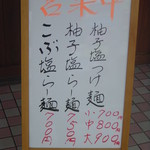 営業中
柚子塩つけ麺
小700円
中800円
大900円
柚子塩らー麺
750円
こぶ塩らー麺
700円